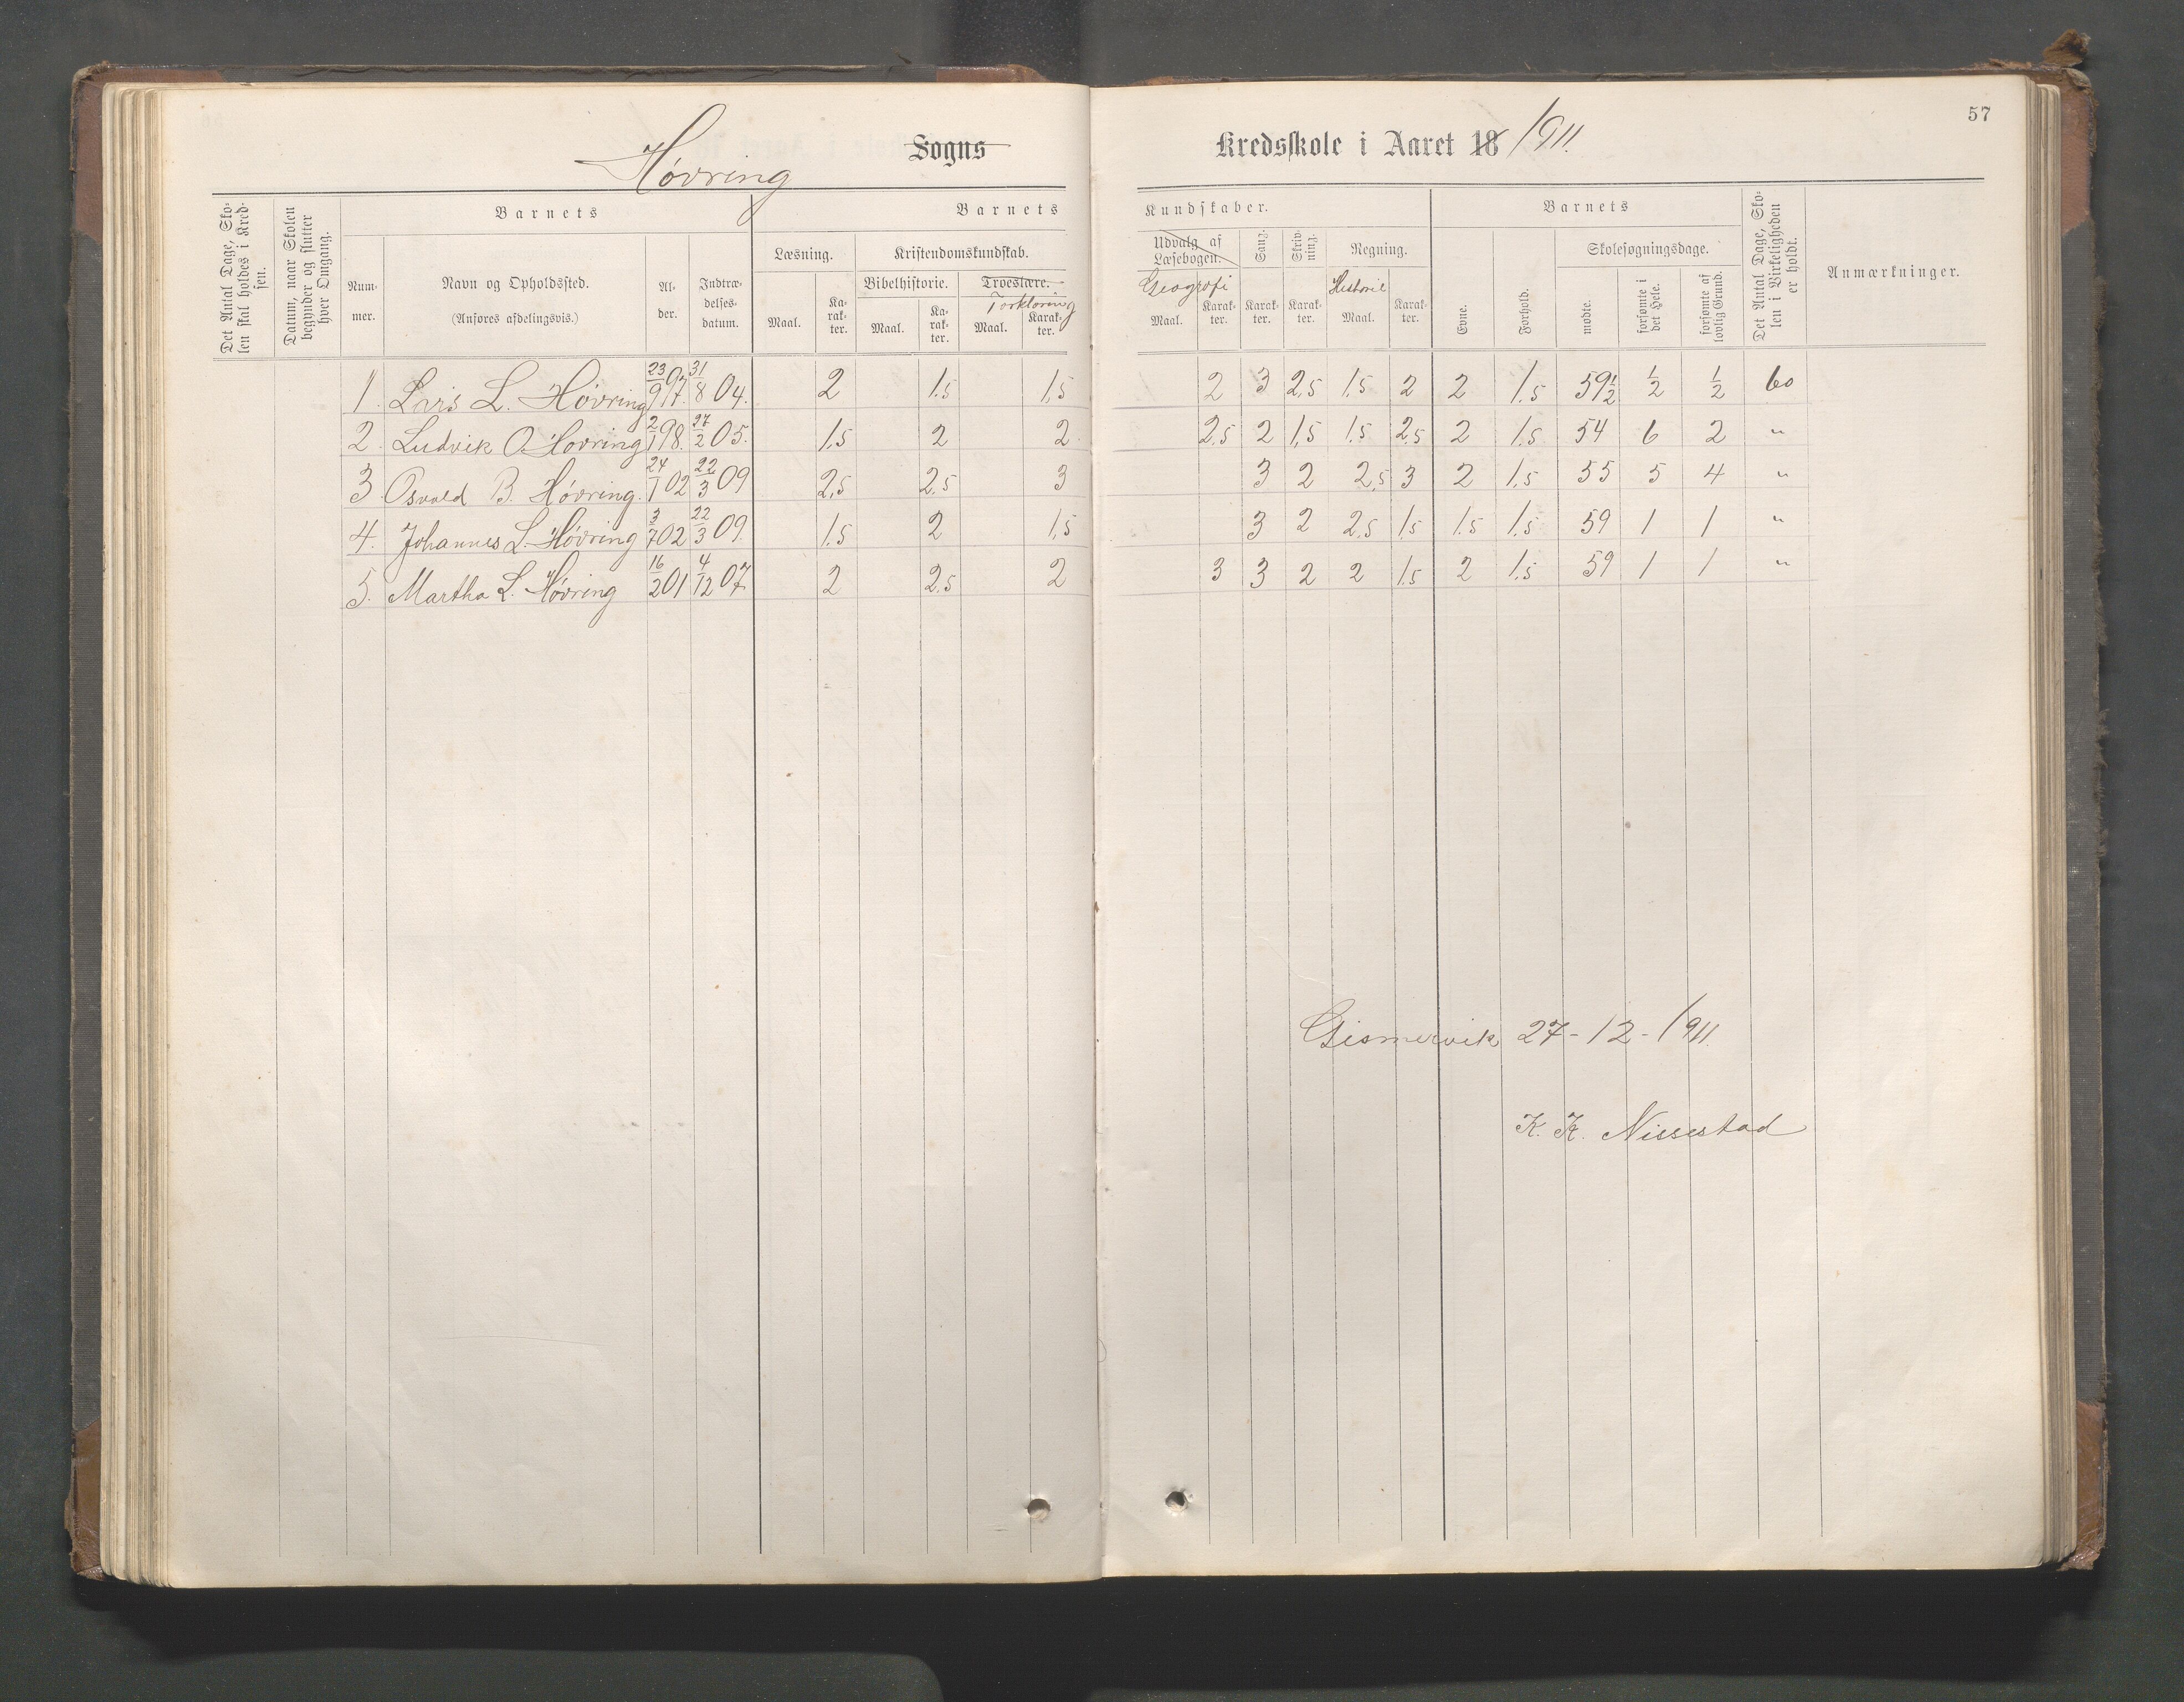 57
Høvring Sogns Kredsskole i Aaret 18 1911.
Det Antal Dage, Sko-
len skal holdes i Kred-
sen.
Datum, naar Skolen
begynder og slutter
hver Omgang.
Barnets
Num-
mer.
Navn og Opholdssted.
(Anføres afdelingsvis.)
Al-
der.
Indtræ-
delses-
datum.
Barnets
Læsning.
Maal.
Ka-
rak-
ter.
Kristendomskundskab.
Bibelhistorie.
Maal.
Ka-
rak-
ter.
Troeslære.
Forklaring
Maal.
Karak-
ter.
Kundskaber.
Udvalg af
Læsebogen.
Geografi
Maal.
Karak-
ter.
Sang.
Karak-
ter.
Skriv-
ning.
Karak-
ter.
Regning.
Historie
Maal.
Karak-
ter.
Barnets
Evne.
Forhold.
Skolesøgningsdage.
mødte.
forsømte i
det Hele.
forsømte af
lovlig Grund.
Det Antal Dage, Sko-
len i Virkeligheden
er holdt.
Anmærkninger.
1. Lars L. Høvring 23/9 97. 31/8 04. 2 1.5 1,5 2 3 2,5 1,5 2 2 1.5 59½ ½ ½ 60
2. Ludvik O. Høvring 2/1 98. 27/2 05. 1,5 2 2. 2,5 2 1,5 1.5 2,5 2 1.5 54 6 2 "
3. Osvald B. Høvring. 24/1 02 22/3 09 2,5 2,5 3 3 2 2,5 3 2 1,5 55 5 4 "
4. Johannes L. Høvring 3/7 02 22/3 09. 1.5 2 1,5 3 2 2,5 1,5 1.5 1.5 59 1 1 "
5. Martha L. Høvring 16/2 01 4/12 07 2 2,5 2 3 3 2 2 1.5 2 1.5 59 1 1 "
Gismervik 27-12-1911.
K. K. Nissestad